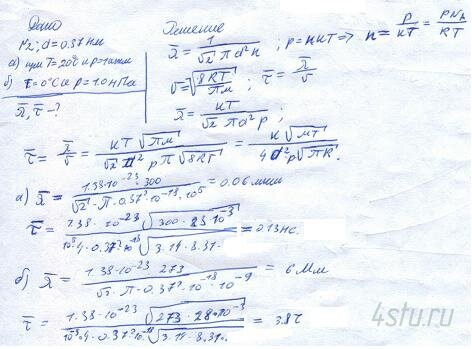 Дано
N₂; d = 0.37 нм
а) при T = 20°C и p = 1атм
б) t = 0°C и p = 1.0 нПа
λ̄, τ̄ - ?
Решение
λ̄ = 1/(√2 π d² n) ; p = nкT => n = p/(кT) = pN_A/(RT)
v̄ = √(8RT/(πм)) ; τ̄ = λ̄/v̄
λ̄ = кT/(√2 π d² p) ;
τ̄ = λ̄/v̄ = кT √(πм)/(√2 d² p π √(8RT)) = к√(мT)/(4 d² p √(πR)).
а) λ̄ = 1.38·10⁻²³ · 300/(√2 · π · 0.37² · 10⁻¹⁸ · 10⁵) = 0.06 мкм
τ̄ = 1.38 · 10⁻²³ √(300 · 28·10⁻³)/(10⁵ · 4 · 0.37² · 10⁻¹⁸ √(3.14 · 8.31)) = 0.13 нс.
б) λ̄ = 1.38 · 10⁻²³ · 273/(√2 · π · 0.37² · 10⁻¹⁸ · 10⁻⁹) = 6 Мм
τ̄ = 1.38 · 10⁻²³ √(273 · 28·10⁻³)/(4 · 0.37² · 10⁻¹⁸ √(3.14 · 8.31)) =
4stu.ru